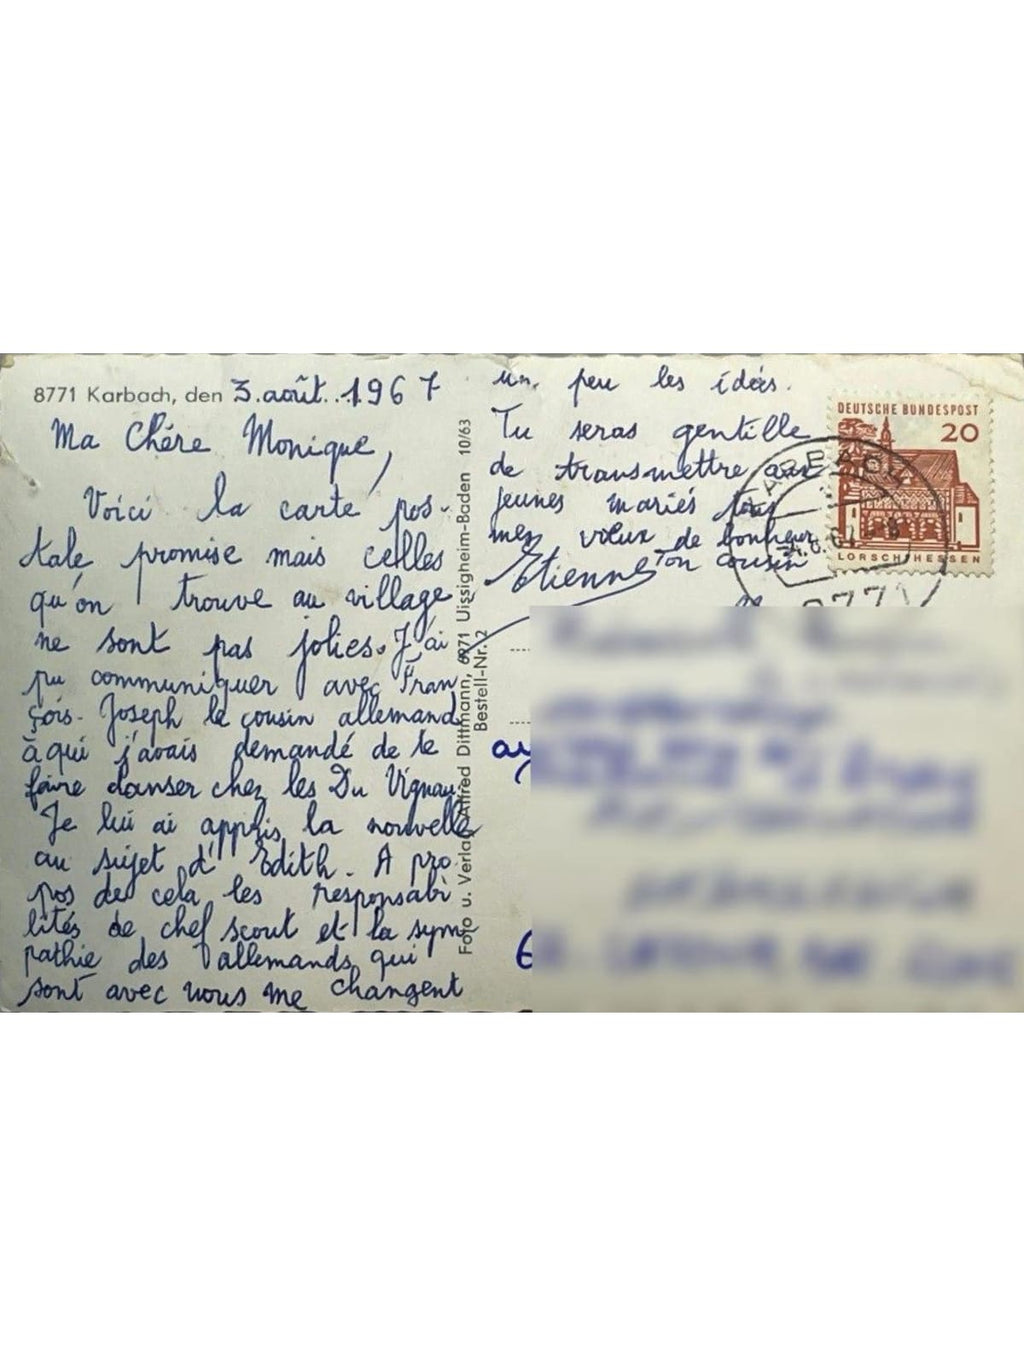 8771 Karbach, den 3. août. 1967
Ma Chère Monique,
Voici la carte pos-
tale promise mais celles
qu'on trouve au village
ne sont pas jolies. J'ai
pu communiquer avec Fran
çois-Joseph le cousin allemand
à qui j'avais demandé de te
faire danser chez les Du Vignau.
Je lui ai appris la nouvelle
au sujet d'Edith. A pro
pos de cela les responsabi
lités de chef scout et la sym
pathie des allemands qui
sont avec nous me changent
un peu les idées.
Tu seras gentille
de transmettre aux
jeunes mariés tous
mes vœux de bonheur
Ton cousin
Etienne
Foto u. Verlag Alfred Dittmann, 6971 Uissigheim-Baden 10/63
Bestell-Nr. 2
DEUTSCHE BUNDESPOST
20
LORSCH/HESSEN
KARBACH
-4.8.67-8
8771